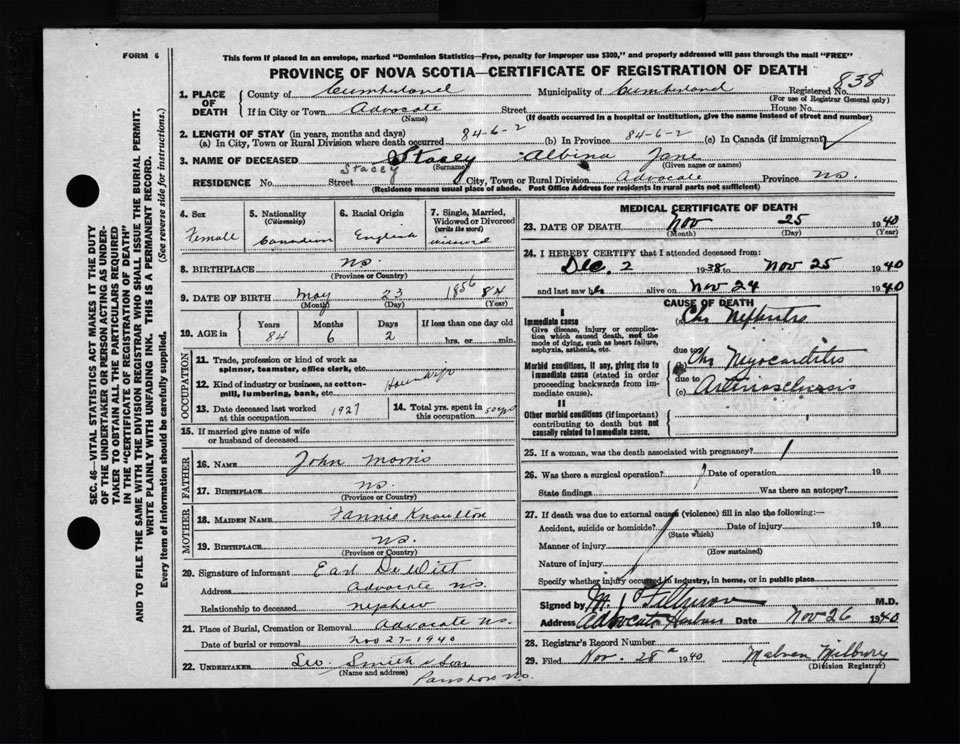 FORM 6
This form if placed in an envelope, marked "Dominion Statistics—Free, penalty for improper use $300," and properly addressed will pass through the mail "FREE"
PROVINCE OF NOVA SCOTIA—CERTIFICATE OF REGISTRATION OF DEATH
SEC. 46—VITAL STATISTICS ACT MAKES IT THE DUTY
OF THE UNDERTAKER OR PERSON ACTING AS UNDER-
TAKER TO OBTAIN ALL THE PARTICULARS REQUIRED
IN THE "CERTIFICATE OF REGISTRATION OF DEATH"
AND TO FILE THE SAME WITH THE DIVISION REGISTRAR WHO SHALL ISSUE THE BURIAL PERMIT.
WRITE PLAINLY WITH UNFADING INK. THIS IS A PERMANENT RECORD.
Every item of information should be carefully supplied. (See reverse side for instructions.)
1. PLACE OF DEATH County of Cumberland Municipality of Cumberland Registered No. 838
(For use of Registrar General only)
If in City or Town Advocate Street House No.
(Name) (If death occurred in a hospital or institution, give the name instead of street and number)
2. LENGTH OF STAY (in years, months and days)
(a) In City, Town or Rural Division where death occurred 84-6-2 (b) In Province 84-6-2 (c) In Canada (if immigrant)
3. NAME OF DECEASED Stacey Albina Jane
Stacey (Surname) (Given name or names)
RESIDENCE No. Street City, Town or Rural Division Advocate Province N.S.
(Residence means usual place of abode. Post Office Address for residents in rural parts not sufficient)
4. Sex 5. Nationality 6. Racial Origin 7. Single, Married,
(Citizenship) Widowed or Divorced
(write the word)
Female Canadian English widowed
8. BIRTHPLACE N.S.
(Province or Country)
9. DATE OF BIRTH May 23 1856 84
(Month) (Day) (Year)
10. AGE in Years Months Days If less than one day old
84 6 2 hrs. or min.
OCCUPATION
11. Trade, profession or kind of work as
spinner, teamster, office clerk, etc.
12. Kind of industry or business, as cotton- Housewife
mill, lumbering, bank, etc.
13. Date deceased last worked 14. Total yrs. spent in
at this occupation 1927 this occupation 50 yrs
15. If married give name of wife
or husband of deceased
FATHER
16. NAME John Morris
17. BIRTHPLACE N.S.
(Province or Country)
MOTHER
18. MAIDEN NAME Fannie Knowlton
19. BIRTHPLACE N.S.
(Province or Country)
20. Signature of informant Earl DeWitt
Address Advocate N.S.
Relationship to deceased nephew
21. Place of Burial, Cremation or Removal Advocate N.S.
Date of burial or removal Nov 27-1940
22. UNDERTAKER Leo Smith & Son
(Name and address)
Parrsboro N.S.
MEDICAL CERTIFICATE OF DEATH
23. DATE OF DEATH Nov 25 1940
(Month) (Day) (Year)
24. I HEREBY CERTIFY that I attended deceased from:
Dec 2 1938 to Nov 25 1940
and last saw her alive on Nov 24 1940
CAUSE OF DEATH
I
Immediate cause (a) Chr Nephritis
Give disease, injury or complica-
tion which caused death, not the
mode of dying, such as heart failure,
asphyxia, asthenia, etc.
due to Chr Myocarditis
Morbid conditions, if any, giving rise to
immediate cause (stated in order due to
proceeding backwards from im- (c) Arteriosclerosis
mediate cause).
II
Other morbid conditions (if important)
contributing to death but not
causally related to immediate cause.
25. If a woman, was the death associated with pregnancy?
26. Was there a surgical operation? Date of operation 19
State findings Was there an autopsy?
27. If death was due to external causes (violence) fill in also the following:—
Accident, suicide or homicide? Date of injury 19
(State which)
Manner of injury
(How sustained)
Nature of injury
Specify whether injury occurred in industry, in home, or in public place
Signed by M. M.D.
Address Advocate Harbour Date Nov 26 1940
28. Registrar's Record Number
29. Filed Nov. 28 1940 Milbury
(Division Registrar)